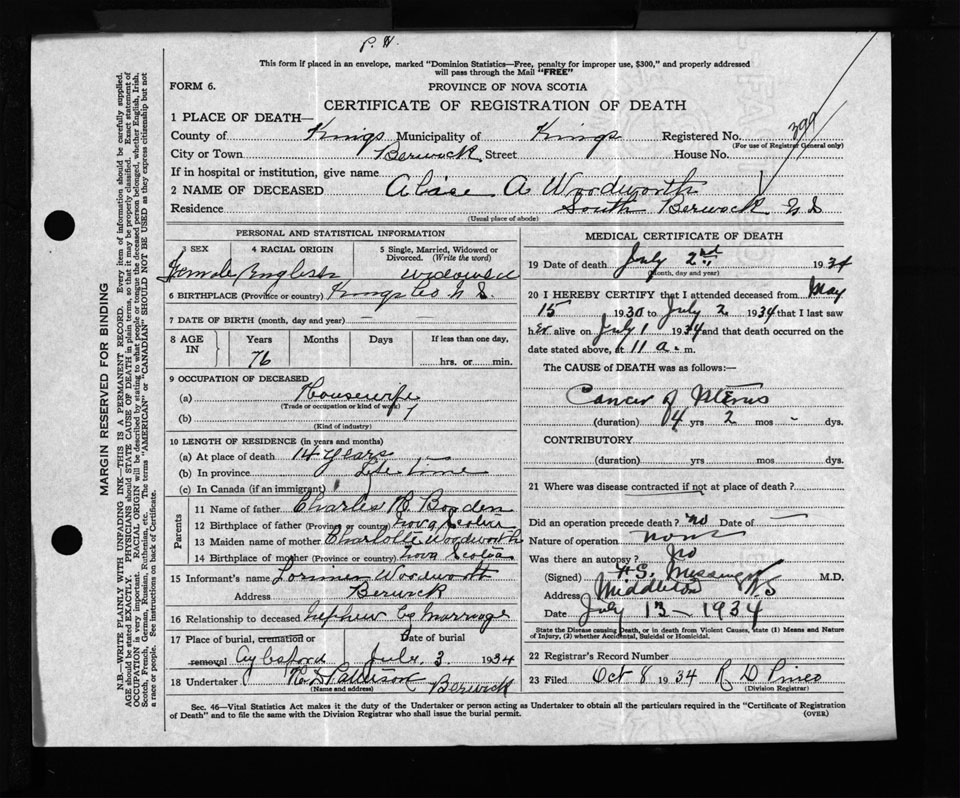 P. H.
This form if placed in an envelope, marked "Dominion Statistics—Free, penalty for improper use, $300," and properly addressed
will pass through the Mail "FREE"
FORM 6.
PROVINCE OF NOVA SCOTIA
CERTIFICATE OF REGISTRATION OF DEATH
1 PLACE OF DEATH—
County of Kings Municipality of Kings Registered No. 399
(For use of Registrar General only)
City or Town Berwick Street House No.
If in hospital or institution, give name
2 NAME OF DECEASED A Woodworth
Residence South Berwick N S
(Usual place of abode)
PERSONAL AND STATISTICAL INFORMATION
3 SEX Female
4 RACIAL ORIGIN English
5 Single, Married, Widowed or Divorced. (Write the word) widowed
6 BIRTHPLACE (Province or country) Kings Co N. S.
7 DATE OF BIRTH (month, day and year) —
8 AGE IN Years Months Days If less than one day,
76 hrs. or min.
9 OCCUPATION OF DECEASED
(a) Housewife
(Trade or occupation or kind of work)
(b)
(Kind of industry)
10 LENGTH OF RESIDENCE (in years and months)
(a) At place of death 14 years
(b) In province Life time
(c) In Canada (if an immigrant)
Parents
11 Name of father Charles R. Bowden
12 Birthplace of father (Province or country) Nova Scotia
13 Maiden name of mother Charlotte Woodworth
14 Birthplace of mother (Province or country) Nova Scotia
15 Informant's name Lorimer Woodworth
Address Berwick
16 Relationship to deceased Nephew by Marriage
17 Place of burial, cremation or removal Aylesford
Date of burial July. 3 1934
18 Undertaker Pattison Berwick
(Name and address)
MEDICAL CERTIFICATE OF DEATH
19 Date of death July 2nd 1934
(Month, day and year)
20 I HEREBY CERTIFY that I attended deceased from May
15 1930 to July 2 1934 that I last saw
her alive on July 1 1934 and that death occurred on
date stated above, at 11 a. m.
The CAUSE of DEATH was as follows:—
Cancer of Uterus
(duration) 4 yrs 2 mos - dys.
CONTRIBUTORY
(duration) yrs mos dys.
21 Where was disease contracted if not at place of death?
Did an operation precede death? no Date of —
Nature of operation none
Was there an autopsy? No
(Signed) Messenger M.D.
Address Middleton NS
Date July 13 - 1934
State the Disease causing Death, or in death from Violent Causes, state (1) Means and Nature
of Injury, (2) whether Accidental, Suicidal or Homicidal.
22 Registrar's Record Number
23 Filed Oct 8 1934 R D Pineo
(Division Registrar)
Sec. 46—Vital Statistics Act makes it the duty of the Undertaker or person acting as Undertaker to obtain all the particulars required in the "Certificate of Registration
of Death" and to file the same with the Division Registrar who shall issue the burial permit.
(OVER)
MARGIN RESERVED FOR BINDING
N.B.—WRITE PLAINLY WITH UNFADING INK—THIS IS A PERMANENT RECORD. Every item of information should be carefully supplied.
AGE should be stated EXACTLY. PHYSICIANS should STATE CAUSE OF DEATH in plain terms, so that it may be properly classified. Exact statement of
OCCUPATION is very important. RACIAL ORIGIN will be described by stating to what people or tongue the deceased person belonged, whether English, Irish,
Scotch, French, German, Russian, Ruthenian, etc. The terms "AMERICAN" or "CANADIAN" SHOULD NOT BE USED as they express citizenship but not
a race or people. See instructions on back of Certificate.